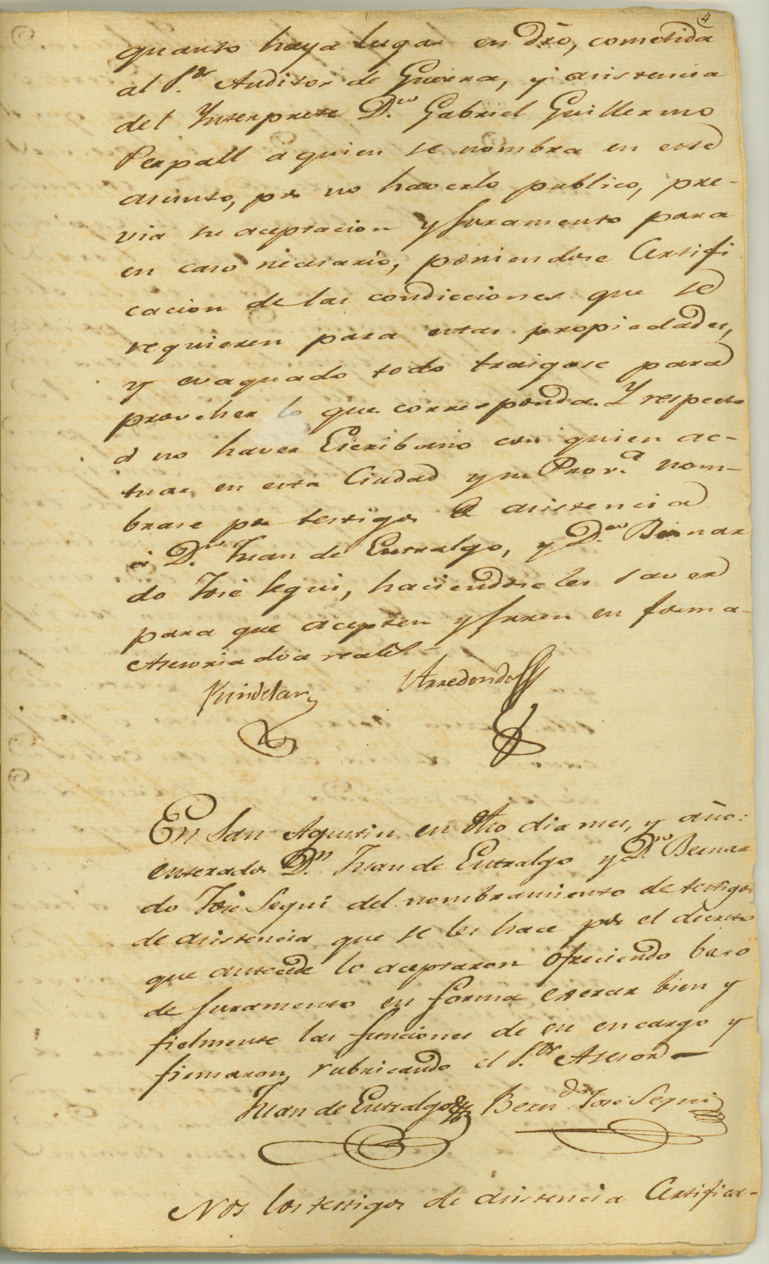 4
quanto haya lugar en dro, cometida
al S.or Auditor de Guerra, y asistencia
del Ynterprete D.n Gabriel Guillermo
Perpall à quien se nombra en este
asunto, pr no haverlo publico, pre-
via su aceptacion y Juramento para
en caso necesario, poniendose Certifi
cacion de las condicciones que se
requieren para estas propiedades,
y evaquado todo traigase para
proveher lo que corresponda. Y respecto
à no haver Escribano con quien ac-
tuar en esta Ciudad y su Prov.a nom-
brase pr testigos de asistencia
à D.n Juan de Entralgo, y D.n Bernar
do José Segui, haciendoseles saver
para que acepten y Juren en forma-
Asesoria dos reales-
Kindelan Arredondo
En San Agustin en dho dia mes, y año:
enterados D.n Juan de Entralgo y D.n Bernar
do José Segui del nombramiento de testigos
de asistencia que se les hace pr el decreto
que antecede lo aceptaron ofreciendo baxo
de Juramento en forma exercer bien y
fielmente las funciones de su encargo y
firmaron, rubricando el S.or Asesor-
Juan de Entralgo Bern.do José Segui
Nos los testigos de asistencia Certifica-